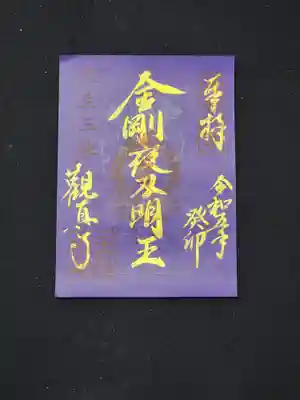 奉拝
令和五年
癸卯
金剛夜叉明王
觀真寺